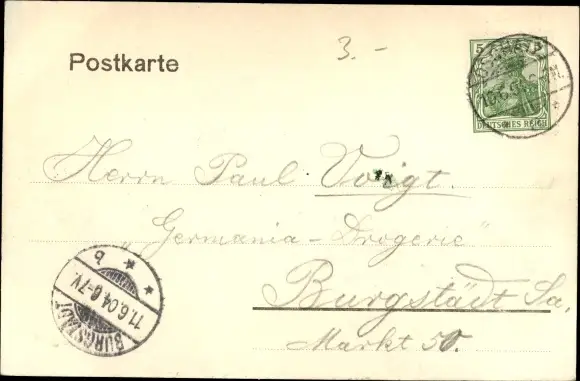 3.-
Postkarte
5
DEUTSCHES REICH
Herrn Paul Voigt.
„Germania-Drogerie"
Burgstädt Sa,
Markt 50.
BURGSTÄDT
11.6.04.6-7V.
* * b